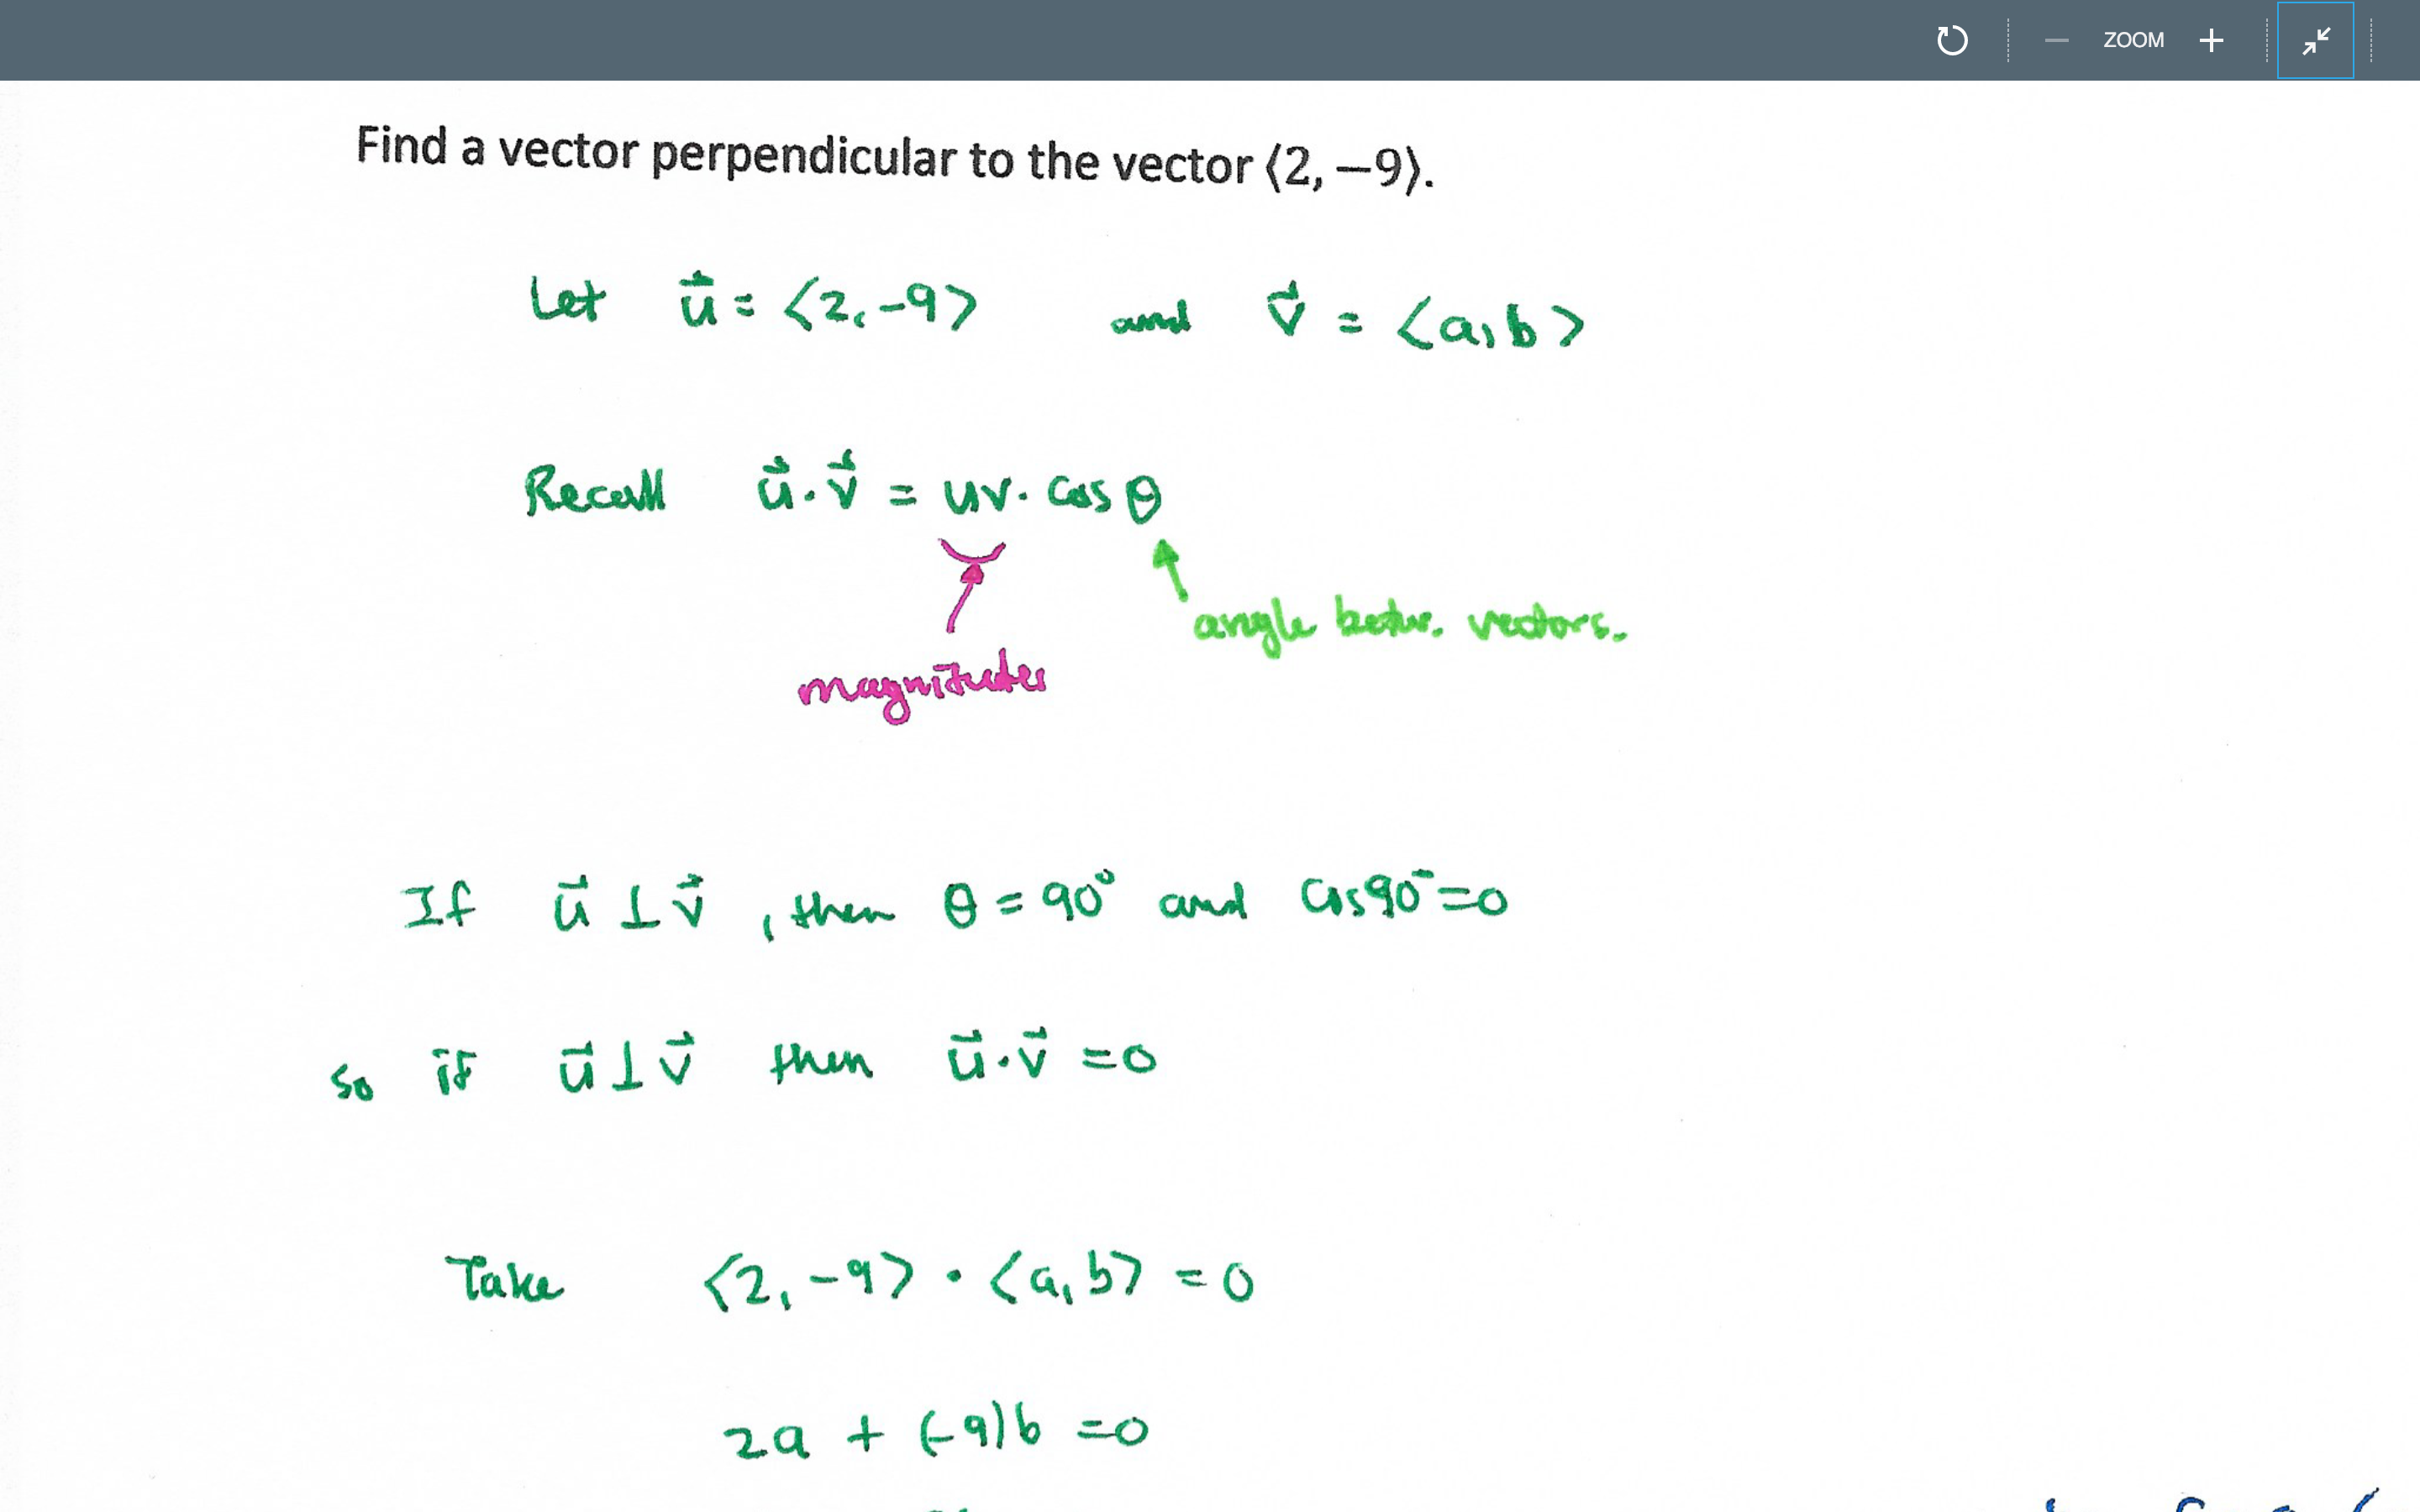 ZOOM
Find a vector perpendicular to the vector ⟨2, −9⟩.
Let u⃗ = ⟨2, -9⟩ and v⃗ = ⟨a, b⟩
Recall u⃗ · v⃗ = uv · cos θ
angle betw. vectors.
magnitudes
If u⃗ ⊥ v⃗, then θ = 90° and cos 90° = 0
so if u⃗ ⊥ v⃗ then u⃗ · v⃗ = 0
Take ⟨2, -9⟩ · ⟨a, b⟩ = 0
2a + (-9)b = 0